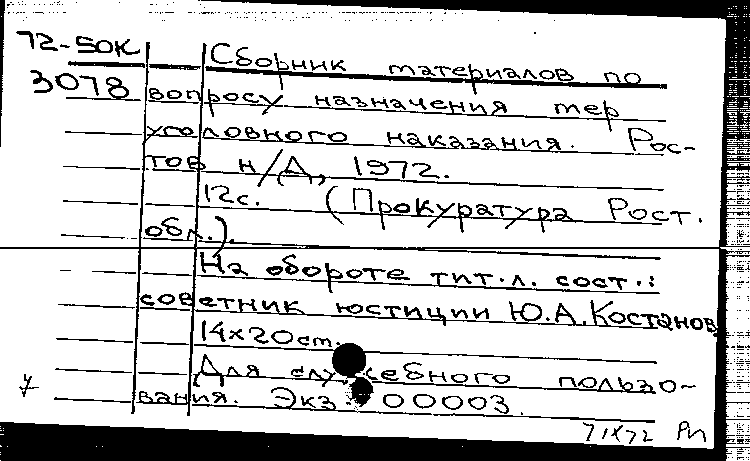 72-50К Сборник материалов по
3078 вопросу назначения мер
уголовного наказания. Рос-
тов н/Д, 1972.
12с. (Прокуратура Рост.
обл.).
На обороте тит.л. сост.:
советник юстиции Ю.А.Костанов
14х20cm.
Для служебного пользо-
вания. Экз. 00003.